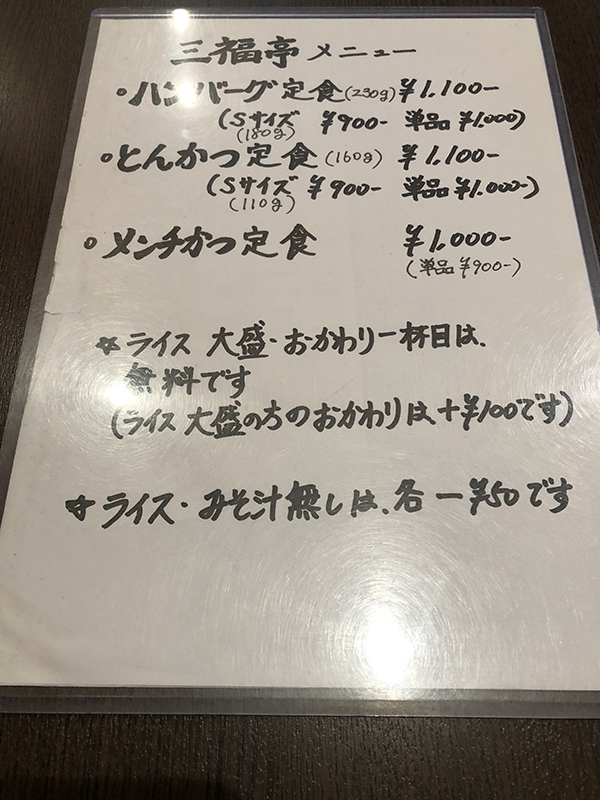 三福亭 メニュー
・ハンバーグ定食(230g) ¥1,100-
(Sサイズ ¥900- 単品 ¥1,000)
(180g)
・とんかつ定食(160g) ¥1,100-
(Sサイズ ¥900- 単品 ¥1,000-)
(110g)
・メンチかつ定食 ¥1,000-
(単品 ¥900-)
☆ライス 大盛・おかわり一杯目は、
無料です
(ライス 大盛のちのおかわりは、+¥100です)
☆ライス・みそ汁無しは、各 -¥50です